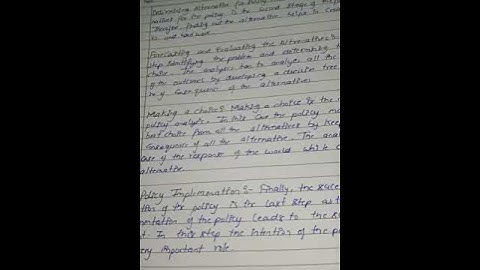 Determining Alternative for Policy
policy is the second stage of
Therefore, finding out the alternative helps to
and hard work.
Forecasting and Evaluating the Alternatives:
step identifying the problem and determining
choice. The analysts has to analyse all the
of the outcomes by developing a decision tree
of consequence of the alternatives
Making a choice: Making a choice is the
policy analysis. In this case the policy
best choice from all the alternatives by keep
Consequences of all the alternative. The
case of the response of the world while
alternative.
Policy Implementation:- Finally, the
tion of the policy is the last step as
mentation of the policy leads to the
t. In this step the intention of the
ery important role.